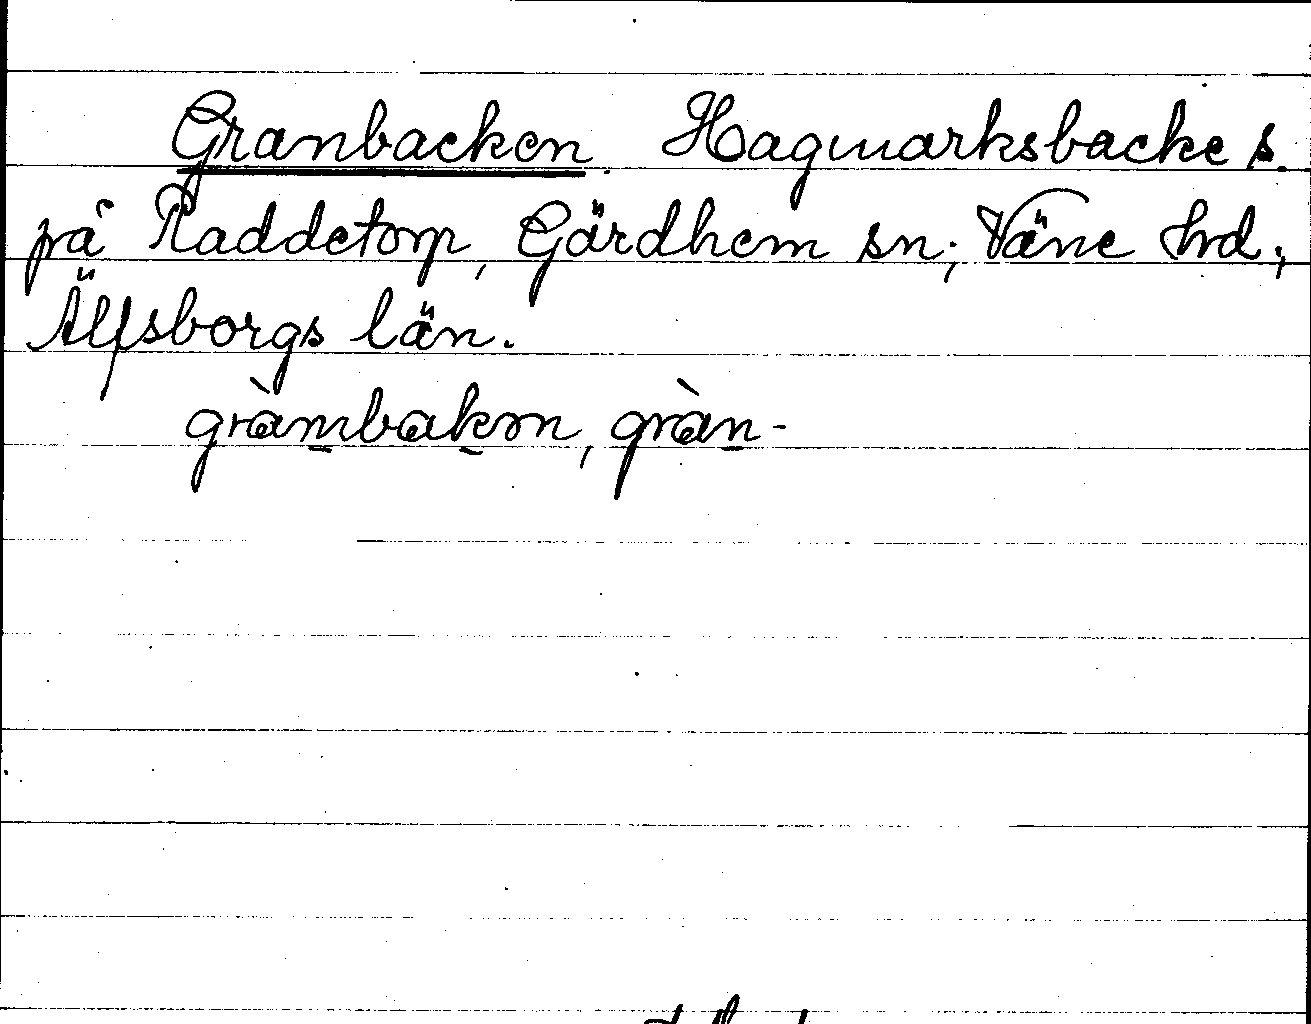 Granbacken. Hagmarksbacke s.
på Raddetorp, Gärdhem sn; Väne hd,
Älfsborgs län.
gràmbakən, gràn-